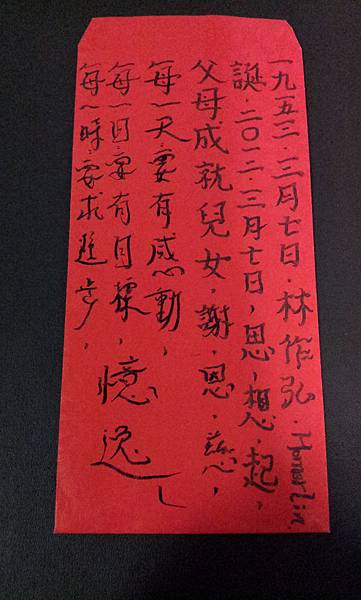 一九五三．三月七日．林作弘．Homer Lin.
誕．二〇一二．三月七日，思，想，起，
父母成就兒女，謝，恩，慈，
每一天，要有感動，
每一日，要有目標，憶逸
每一時，要求進步，